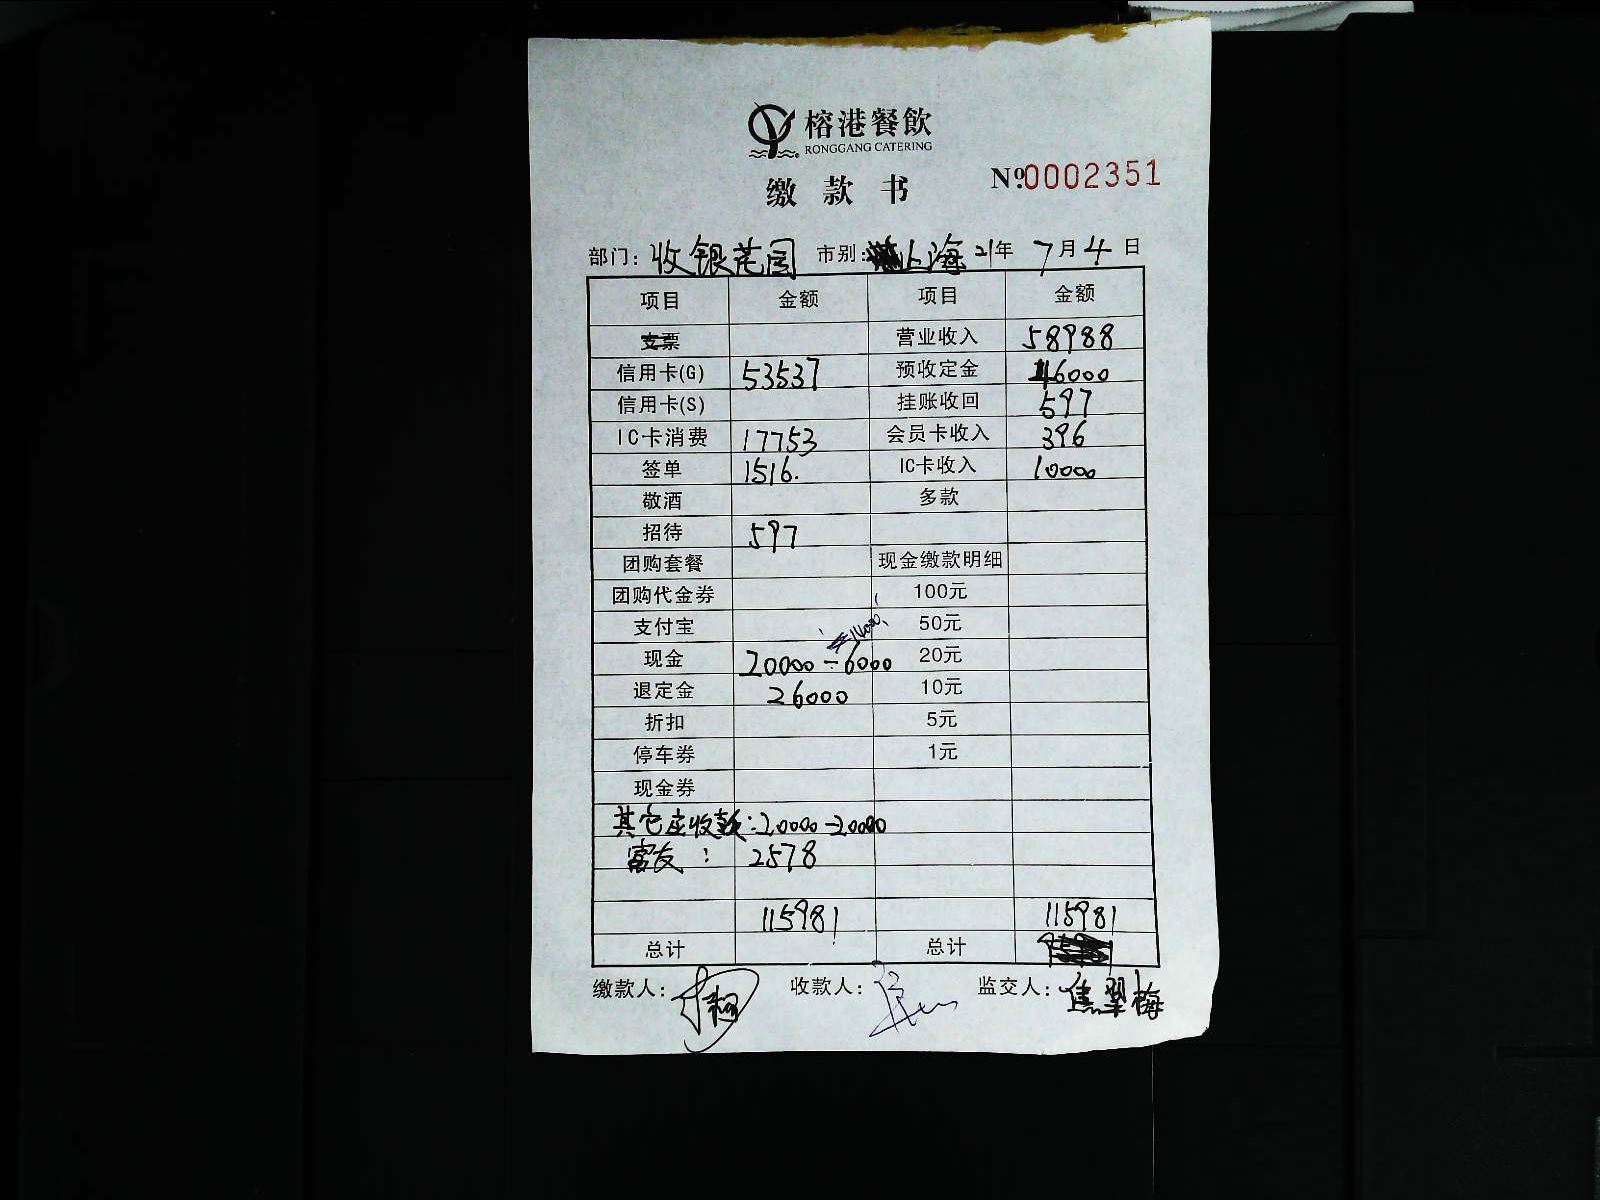 榕港餐飲
RONGGANG CATERING
缴款书
№0002351
部门：收银花园 市别：上海 21年 7月4日
项目 金额 项目 金额
支票 营业收入 58988
信用卡(G) 53537 预收定金 46000
信用卡(S) 挂账收回 597
IC卡消费 17753 会员卡收入 396
签单 1516. IC卡收入 10000
敬酒 多款
招待 597
团购套餐 现金缴款明细
团购代金券 100元
支付宝 50元
14000
现金 20000-6000 20元
退定金 26000 10元
折扣 5元
停车券 1元
现金券
其它应收款：20000-20000
富友： 2578
115981 115981
总计 总计
缴款人： 收款人： 监交人：焦翠梅